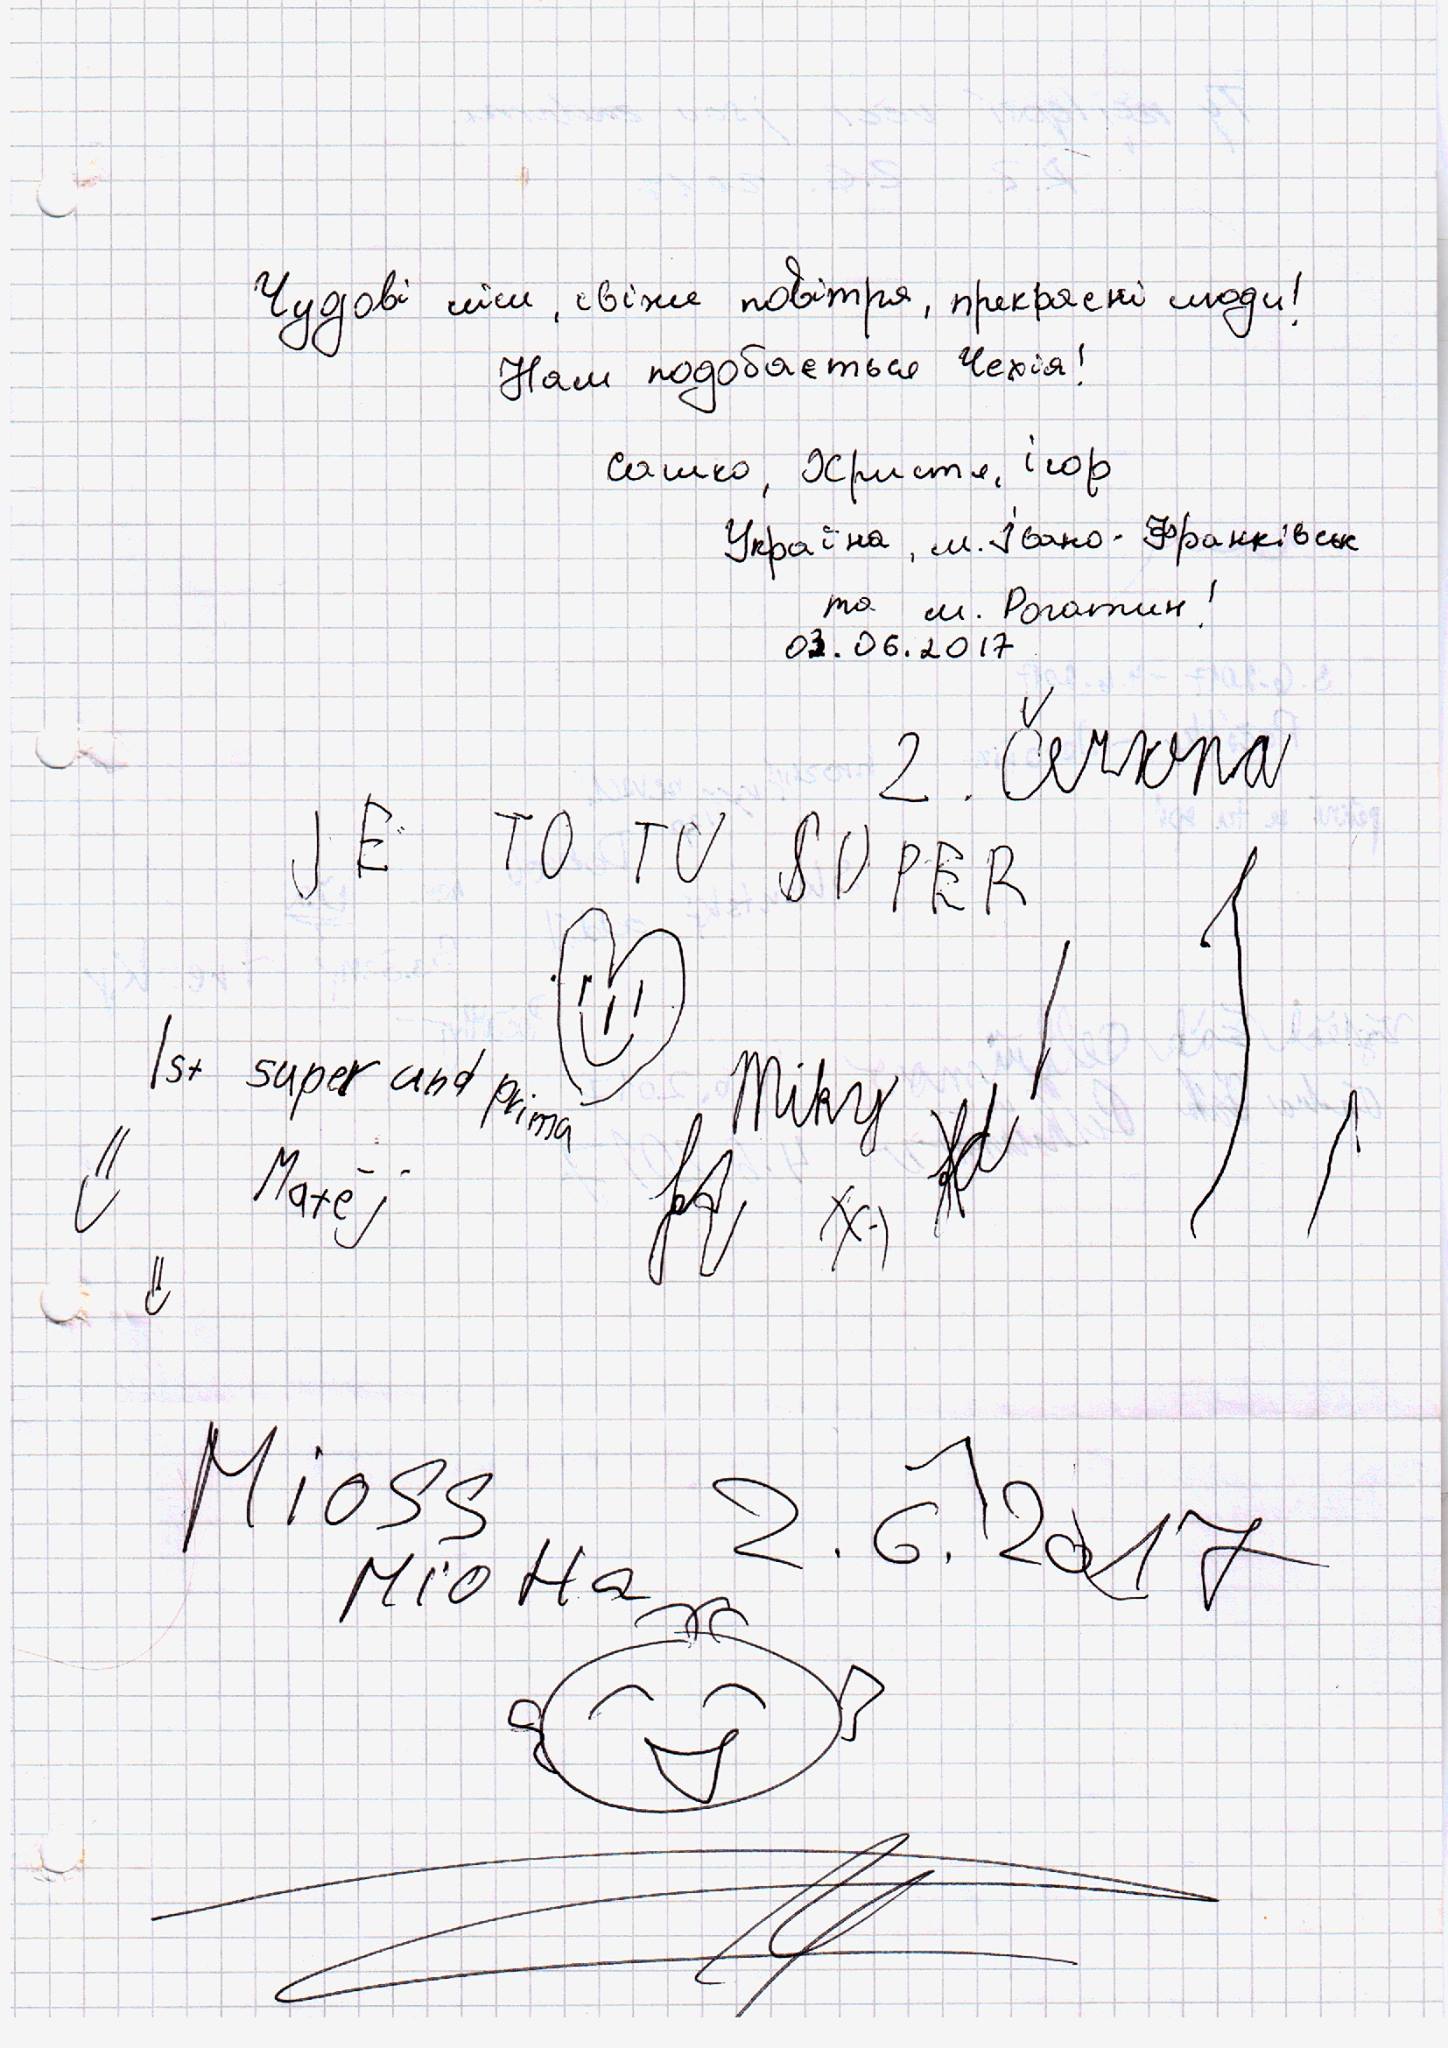 Чудові ліси, свіже повітря, прекрасні люди!
Нам подобається Чехія!
Сашко, Христя, Ігор
Україна, м. Івано-Франківськ
та м. Рогатин!
03.06.2017
2. Června
JE TO TU SUPER
Ist super und prima
Miky
Matěj
Mioss
Mio Ha
2.6.2017